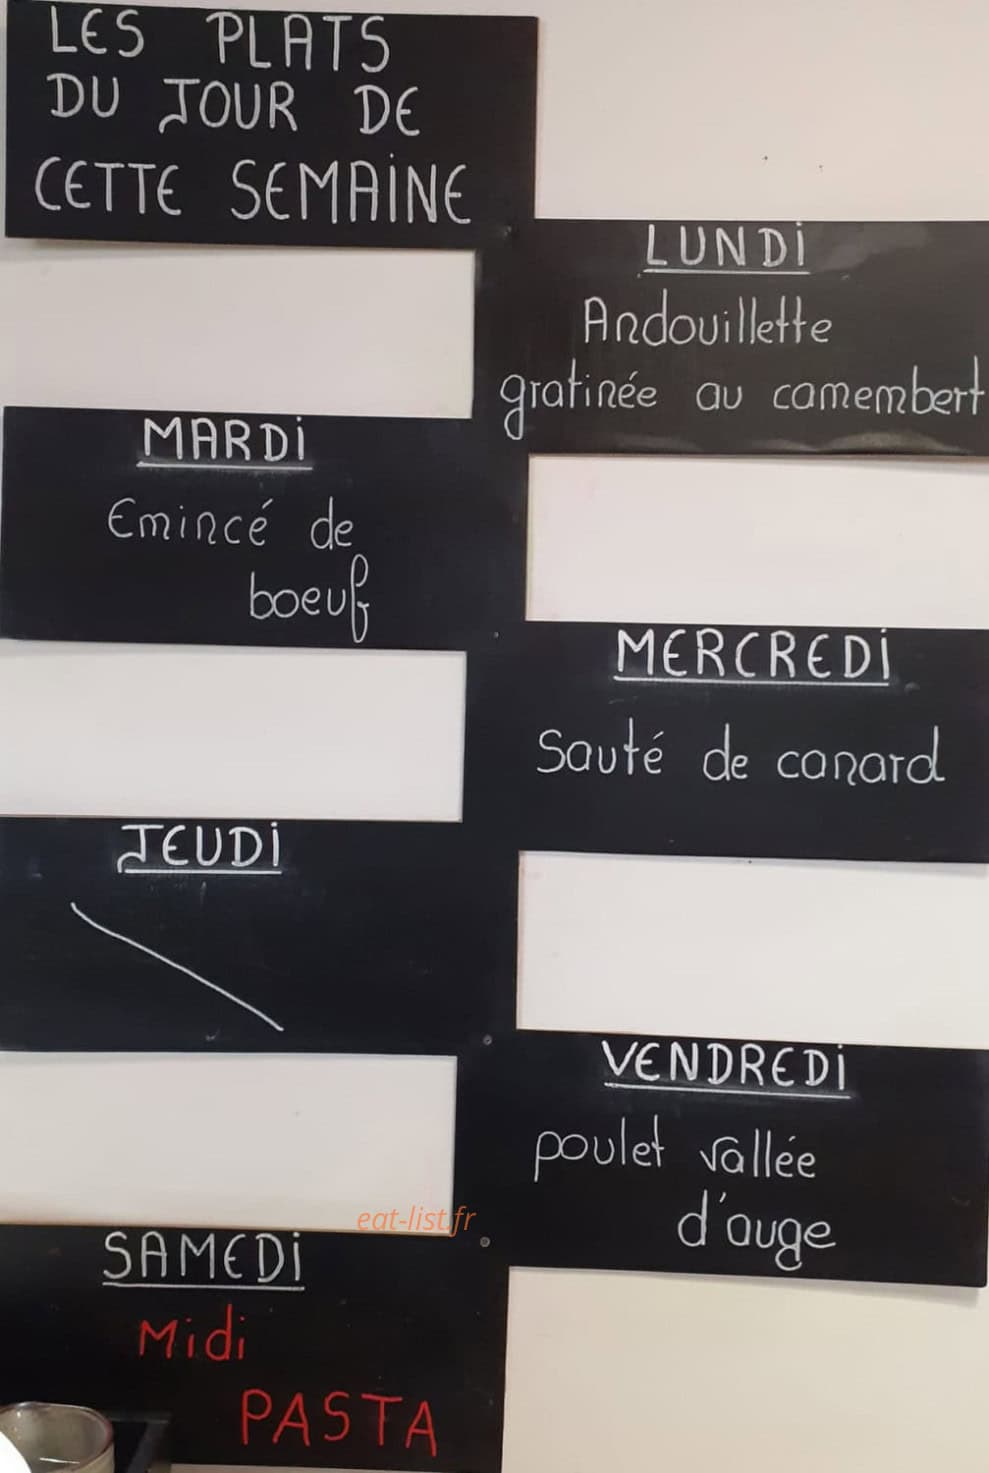 LES PLATS
DU JOUR DE
CETTE SEMAINE
LUNDi
Andouillette
gratinée au camembert
MARDi
Emincé de
boeuf
MERCREDi
Sauté de canard
JEUDi
VENDREDi
poulet vallée
d'auge
eat-list.fr
SAMEDi
Midi
PASTA